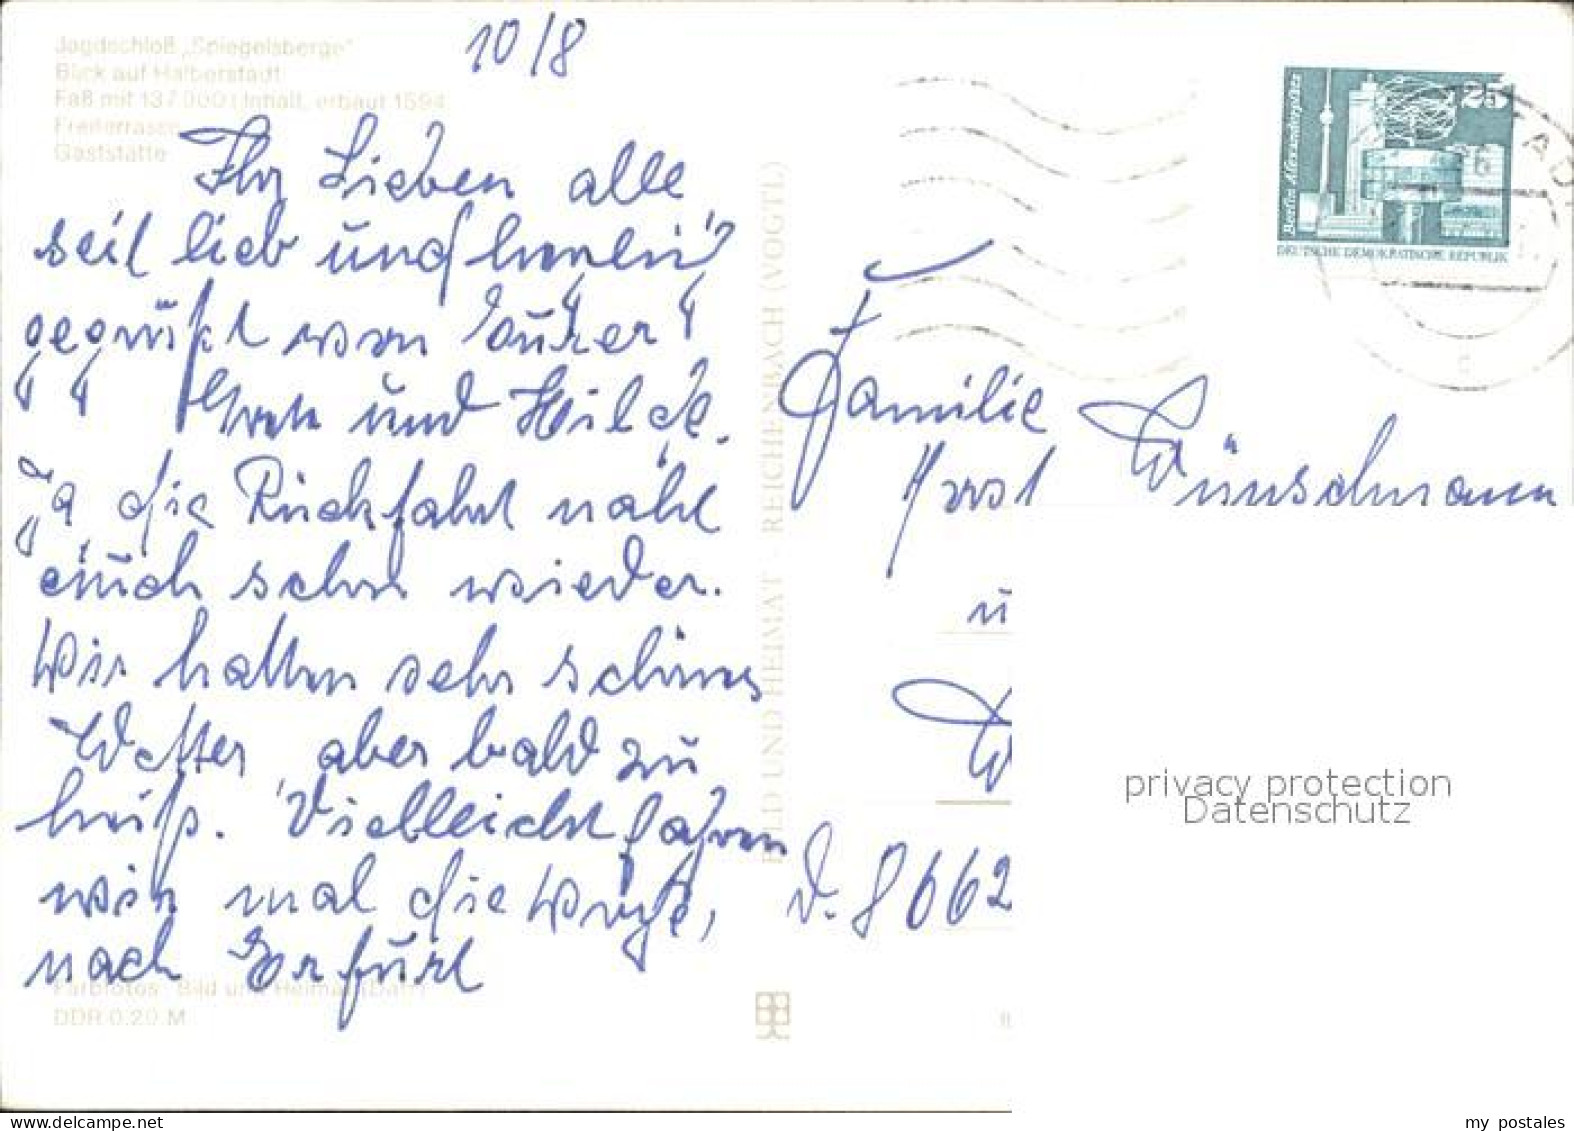 Jagdschloß „Spiegelsberge"
Blick auf Halberstadt
Faß mit 137 000 l Inhalt, erbaut 1594
Freiterrasse
Gaststätte
10/8
Ihr Lieben alle
seit lieb und
gegrüßt von Eurer
und Hilde.
Ja die Rückfahrt naht
auch schon wieder.
Wir hatten sehr schönes
Wetter, aber bald zu
heiß. Vielleicht fahren
wir mal die Woche,
nach Erfurt
Farbfotos: Bild und Heimat
DDR 0.20 M
BILD UND HEIMAT · REICHENBACH (VOGTL)
25
Berlin, Alexanderplatz
DEUTSCHE DEMOKRATISCHE REPUBLIK
Familie
Horst Wünschmann
u
W
D. 8662
privacy protection
Datenschutz
my postales